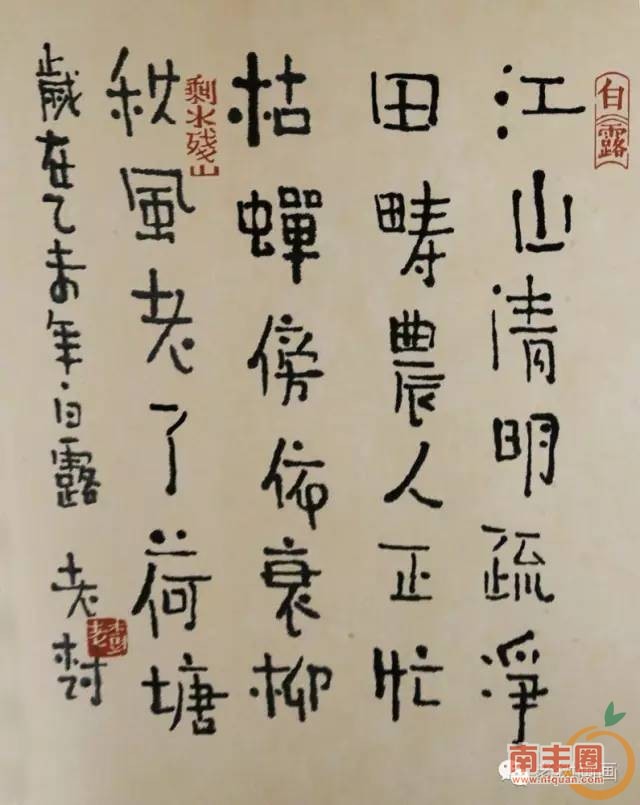 白露
江山清明疏淨
田疇農人正忙
枯蟬傍依衰柳
剩水殘山
秋風老了荷塘
歲在乙未年·白露 老树
老樹
南丰圈
www.nfquan.com
画